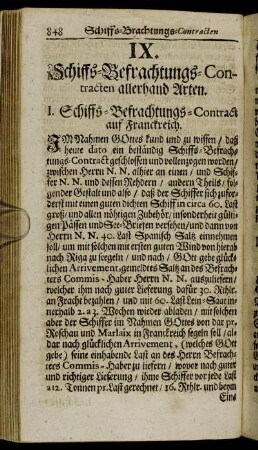 848 Schiffs-Brachtungs-Contracten
IX.
Schiffs-Befrachtungs-Con-
tracten allerhand Arten.
I. Schiffs-Befrachtungs-Contract
auf Franckreich.
IM Nahmen GOttes kund und zu wissen / daß
heute dato ein beständig Schiffs-Befrach-
tungs-Contract geschlossen und vollenzogen worden/
zwischen Herrn N. N. alhier an einen / und Schif-
fer N. N. und dessen Rehdern / andern Theils / fol-
gender Gestalt und also / daß der Schiffer sich zuför-
derst mit einen guten dichten Schiff in circa 60. Last
groß / und allen nöhtigen Zubehör / insonderheit gül-
tigen Pässen und See-Briefen versehen/und dann von
Herrn N. N. 40. Last Spanisch Saltz einnehmen
soll / um mit solchen mit ersten guten Wind von hier ab
nach Riga zu seegeln / und nach / GOtt gebe glück-
lichen Arrivement, gemeldtes Saltz an des Befrach-
ters Commis-Haber Herrn N. N. auszuliefern /
welcher ihm nach guter Lieferung dafür 70. Rthlr.
an Fracht bezahlen / und mit 60. Last Lein-Saat in-
nerhalb 2. a 3. Wochen wieder abladen / mit solchen
aber der Schiffer im Nahmen GOttes von dar zv.
Roschau und Marlaix in Franckreich segeln soll / al-
dar nach glücklichen Arrivement, (welches GOtt
gebe) seine einhabende Last an des Herrn Befrach-
ters Commis-Haber zu liefern / wovor nach guter
und richtiger Lieferung / ihme Schiffer vor jede Last
a 12. Tonnen pr. Last gerechnet / 16. Rthlr. und beym
Eins